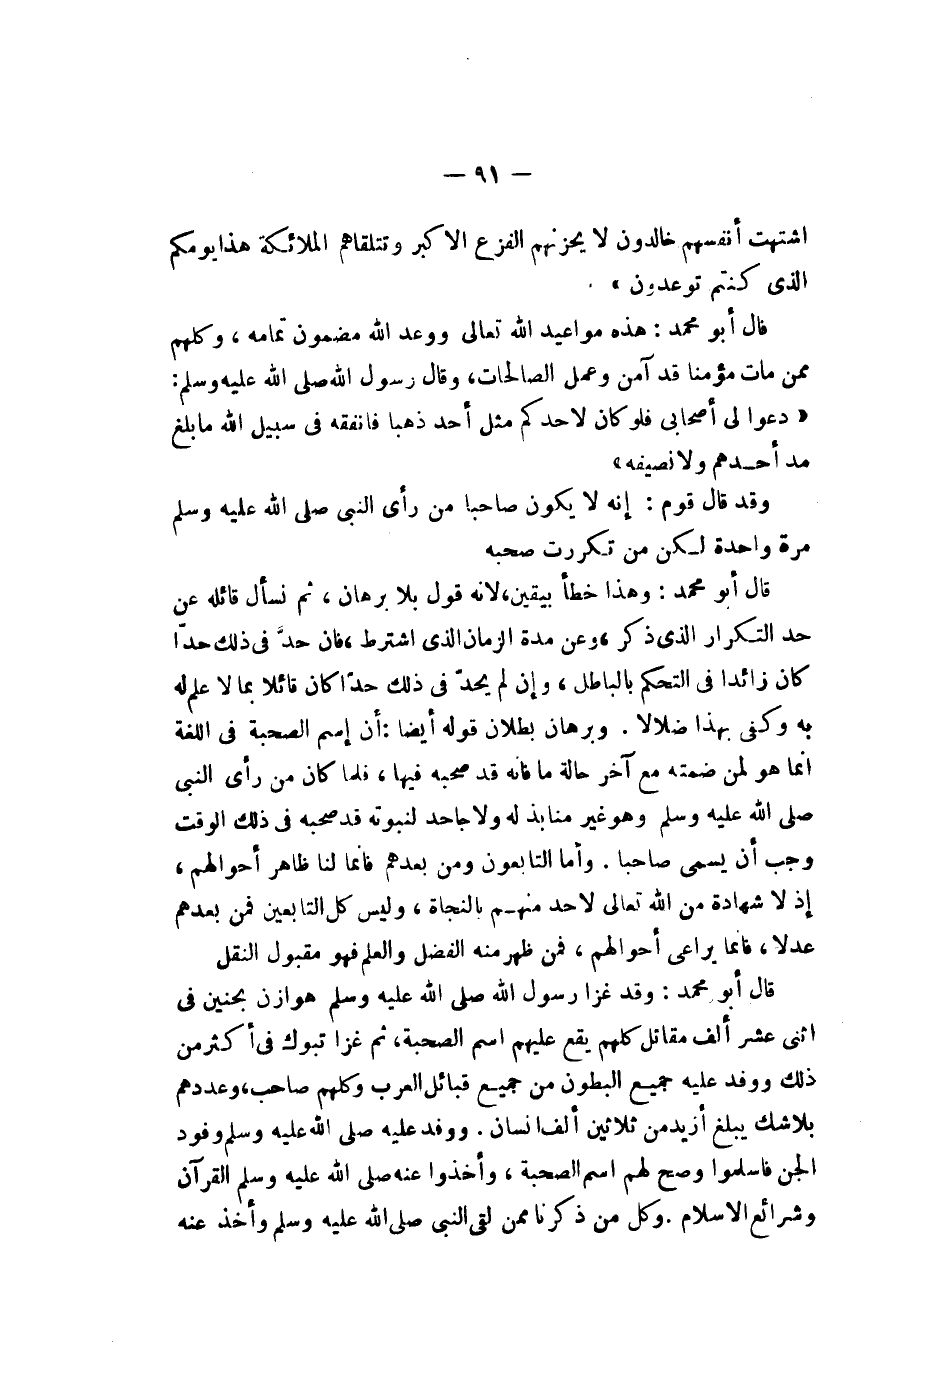 — ٩١ —
اشتهت أنفسهم خالدون لا يحزنهم الفزع الاكبر وتتلقاهم الملائكة هذا يومكم
الذى كنتم توعدون »
قال أبو محمد : هذه مواعيد الله تعالى ووعد الله مضمون تمامه ، وكلهم
ممن مات مؤمنا قد آمن وعمل الصالحات، وقال رسول الله صلى الله عليه وسلم :
« دعوا لى أصحابى فلو كان لاحدكم مثل أحد ذهبا فانفقه فى سبيل الله ما بلغ
مد أحدهم ولا نصيفه»
وقد قال قوم : إنه لا يكون صاحبا من رأى النبى صلى الله عليه وسلم
مرة واحدة لكن من تكررت صحبه
قال أبو محمد : وهذا خطأ بيقين، لانه قول بلا برهان ، ثم نسأل قائله عن
حد التكرار الذى ذكر ، وعن مدة الزمان الذى اشترط ، فان حدَّ فى ذلك حدّا
كان زائدا فى التحكم بالباطل ، وإن لم يحدّ فى ذلك حدّا كان قائلا بما لا علم له
به وكفى بهذا ضلالا . وبرهان بطلان قوله أيضا : أن إسم الصحبة فى اللغة
انما هو لمن ضمته مع آخر حالة ما فانه قد صحبه فيها ، فلما كان من رأى النبى
صلى الله عليه وسلم وهو غير منابذ له ولا جاحد لنبوته قد صحبه فى ذلك الوقت
وجب أن يسمى صاحبا . وأما التابعون ومن بعدهم فانما لنا ظاهر أحوالهم ،
إذ لا شهادة من الله تعالى لاحد منهم بالنجاة ، وليس كل التابعين فمن بعدهم
عدلا ، فانما يراعى أحوالهم ، فمن ظهر منه الفضل والعلم فهو مقبول النقل
قال أبو محمد : وقد غزا رسول الله صلى الله عليه وسلم هوازن بحنين فى
اثنى عشر ألف مقاتل كلهم يقع عليهم اسم الصحبة، ثم غزا تبوك فى أكثر من
ذلك ووفد عليه جميع البطون من جميع قبائل العرب وكلهم صاحب، وعددهم
بلاشك يبلغ أزيد من ثلاثين ألف انسان . ووفد عليه صلى الله عليه وسلم وفود
الجن فاسلموا وصح لهم اسم الصحبة ، وأخذوا عنه صلى الله عليه وسلم القرآن
وشرائع الاسلام . وكل من ذكرنا ممن لقى النبى صلى الله عليه وسلم وأخذ عنه